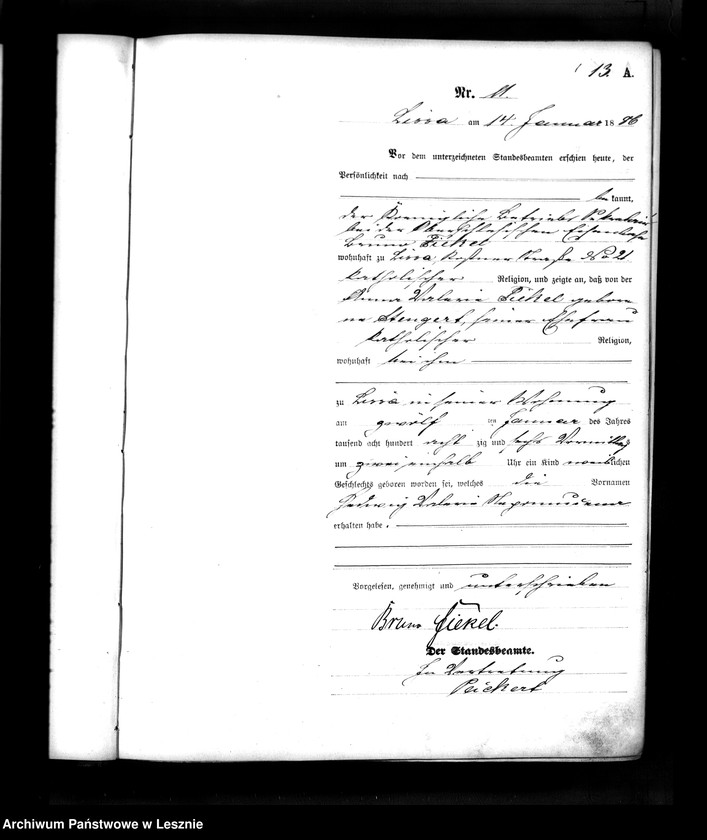 13. A.
Nr. 11.
Lissa am 14. Januar 1886
Vor dem unterzeichneten Standesbeamten erschien heute, der
Persönlichkeit nach
bekannt,
der Koenigliche Betriebs Sekretair
bei der Oberschlesischen Eisenbahn
Bruno
wohnhaft zu Lissa, Kostner Straße No 21
katholischer Religion, und zeigte an, daß von der
Anna Valerie gebore
ne Stengert, seiner Ehefrau
katholischer Religion,
wohnhaft bei ihm
zu Lissa in seiner Wohnung
am zwölf ten Januar des Jahres
tausend acht hundert acht zig und sechs Vormittag
um zwei einhalb Uhr ein Kind weiblichen
Geschlechts geboren worden sei, welches die Vornamen
Hedwig Valerie Nepomucena
erhalten habe.
Vorgelesen, genehmigt und unterschrieben
Bruno
Der Standesbeamte.
In Vertretung
Peickert
Archiwum Państwowe w Lesznie